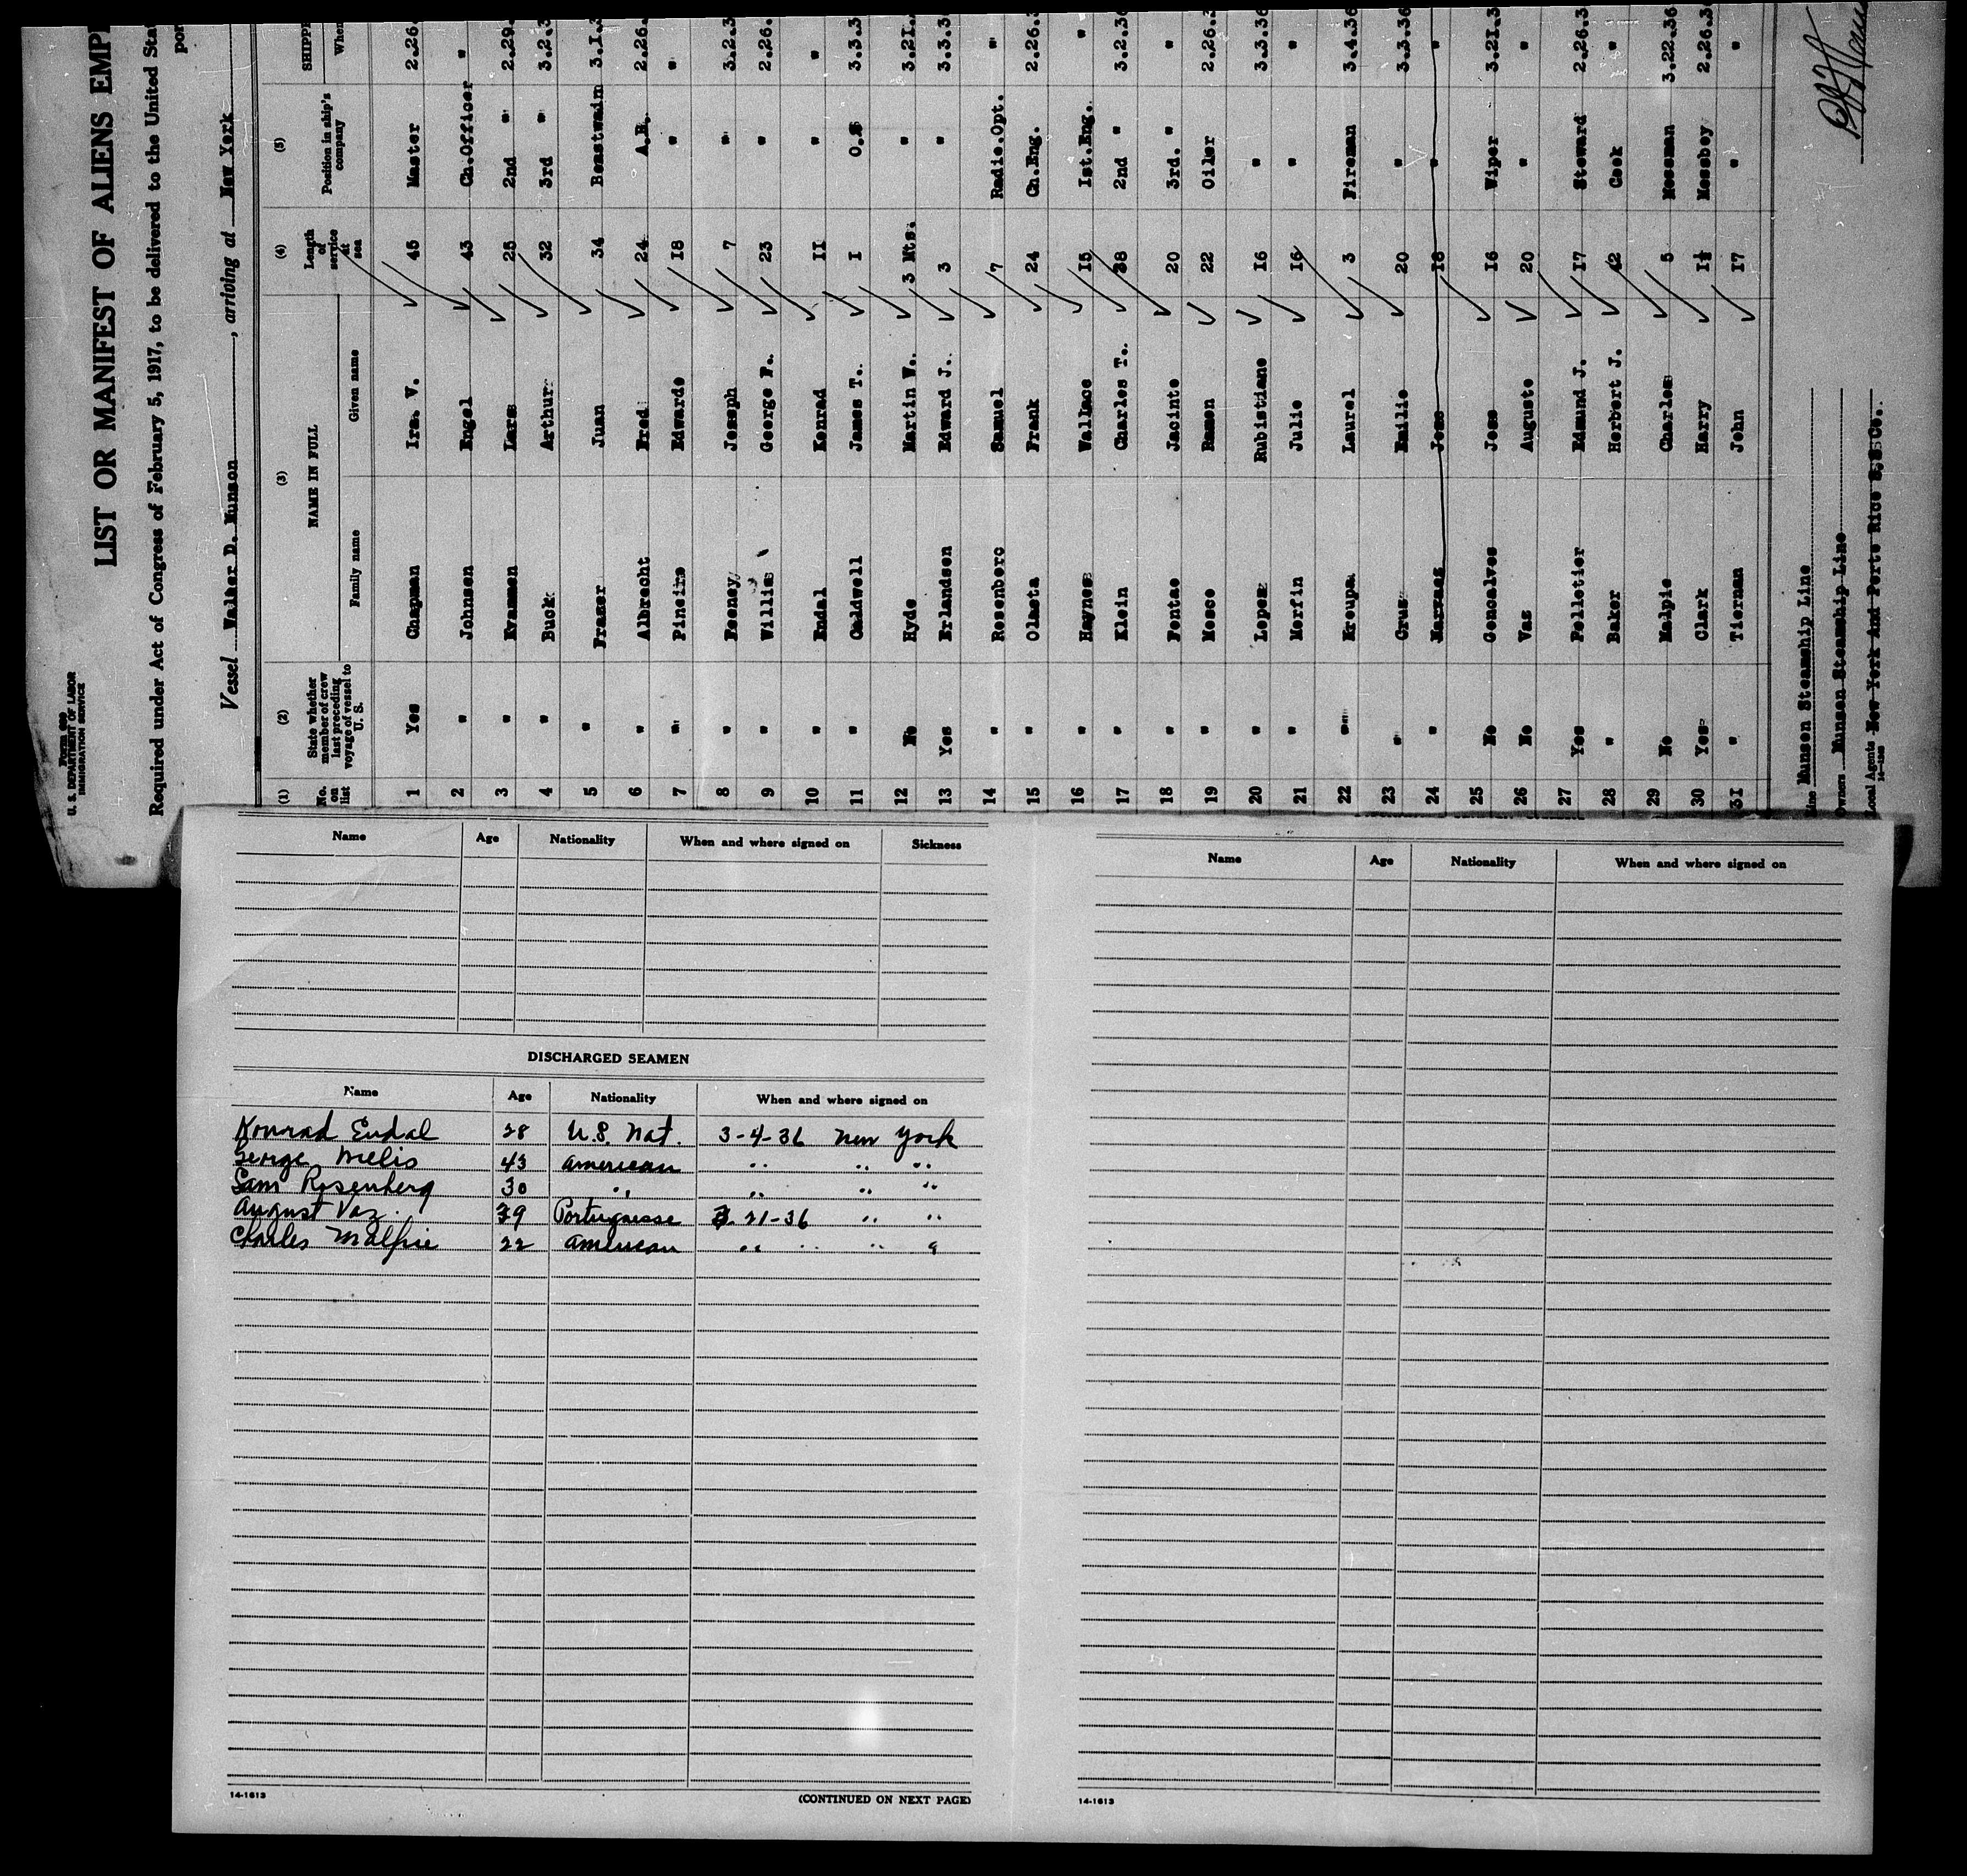 Form 680
U. S. DEPARTMENT OF LABOR
IMMIGRATION SERVICE
LIST OR MANIFEST OF ALIENS EMPL
Required under Act of Congress of February 5, 1917, to be delivered to the United Sta
por
Vessel Walter D. Munson, arriving at New York
(1) (2) (3) (4) (5)
No. on list State whether member of crew last preceding voyage of vessel to U. S. NAME IN FULL Family name Given name Length of service at sea Position in ship's company SHIPPE When
1 Yes Chapman Ira. V. 45 Master 2.26.
2 " Johnsen Engel 43 Ch.Officer "
3 " Evansen Lars 25 2nd " 2.29.
4 " Buck Arthur 32 3rd " 3.2.3
5 " Frazer Juan 34 Boatswain 3.1.3
6 " Albrecht Fred 24 A.B. 2.26.
7 " Pineiro Edwardo 18 " "
8 " Feeney Joseph 7 " 3.2.3
9 " Willis George F. 23 " 2.26.
10 " Endal Konrad 11 " "
11 " Caldwell James T. 1 O.S 3.3.3
12 No Hyde Martin W. 3 Mts. " 3.21.
13 Yes Erlandsen Edward J. 3 " 3.3.3
14 " Rosenberc Samuel 7 Radio.Opt. "
15 " Olasta Frank 24 Ch.Eng. 2.26.3
16 " Haynes Wallace 15 1st.Eng. "
17 " Klein Charles T. 38 2nd " 3.2.36
18 " Fontao Jacinto 20 3rd. " "
19 " Mosco Ramon 22 Oiler 2.26.3
20 " Lopez Rubistiano 16 " 3.3.36
21 " Morfin Julio 16 " "
22 " Kroupa Laurel 3 Fireman 3.4.36
23 " Cruz Emilio 20 " 3.3.36
24 " Narvaez Jose 18 " "
25 No Goncalves Jose 16 Wiper 3.21.3
26 No Vaz Auguste 20 " "
27 Yes Pelletier Edmund J. 17 Steward 2.26.3
28 " Baker Herbert J. 42 Cook "
29 No Malpie Charles 5 Messman 3.22.36
30 Yes Clark Harry 1½ Messboy 2.26.36
31 " Tiernan John 17 " "
Line Munson Steamship Line
Owners Munson Steamship Line
Local Agents New York And Porto Rico S.S Co.
Name Age Nationality When and where signed on Sickness
DISCHARGED SEAMEN
Name Age Nationality When and where signed on
Konrad Endal 28 U.S. Nat. 3-4-36 New York
George Willis 43 American " " "
Sam Rosenberg 30 " " " "
August Vaz. 39 Portuguese 3-21-36 " "
Charles Malpie 22 American " " " "
14-1613
(CONTINUED ON NEXT PAGE)
Name Age Nationality When and where signed on
14-1613